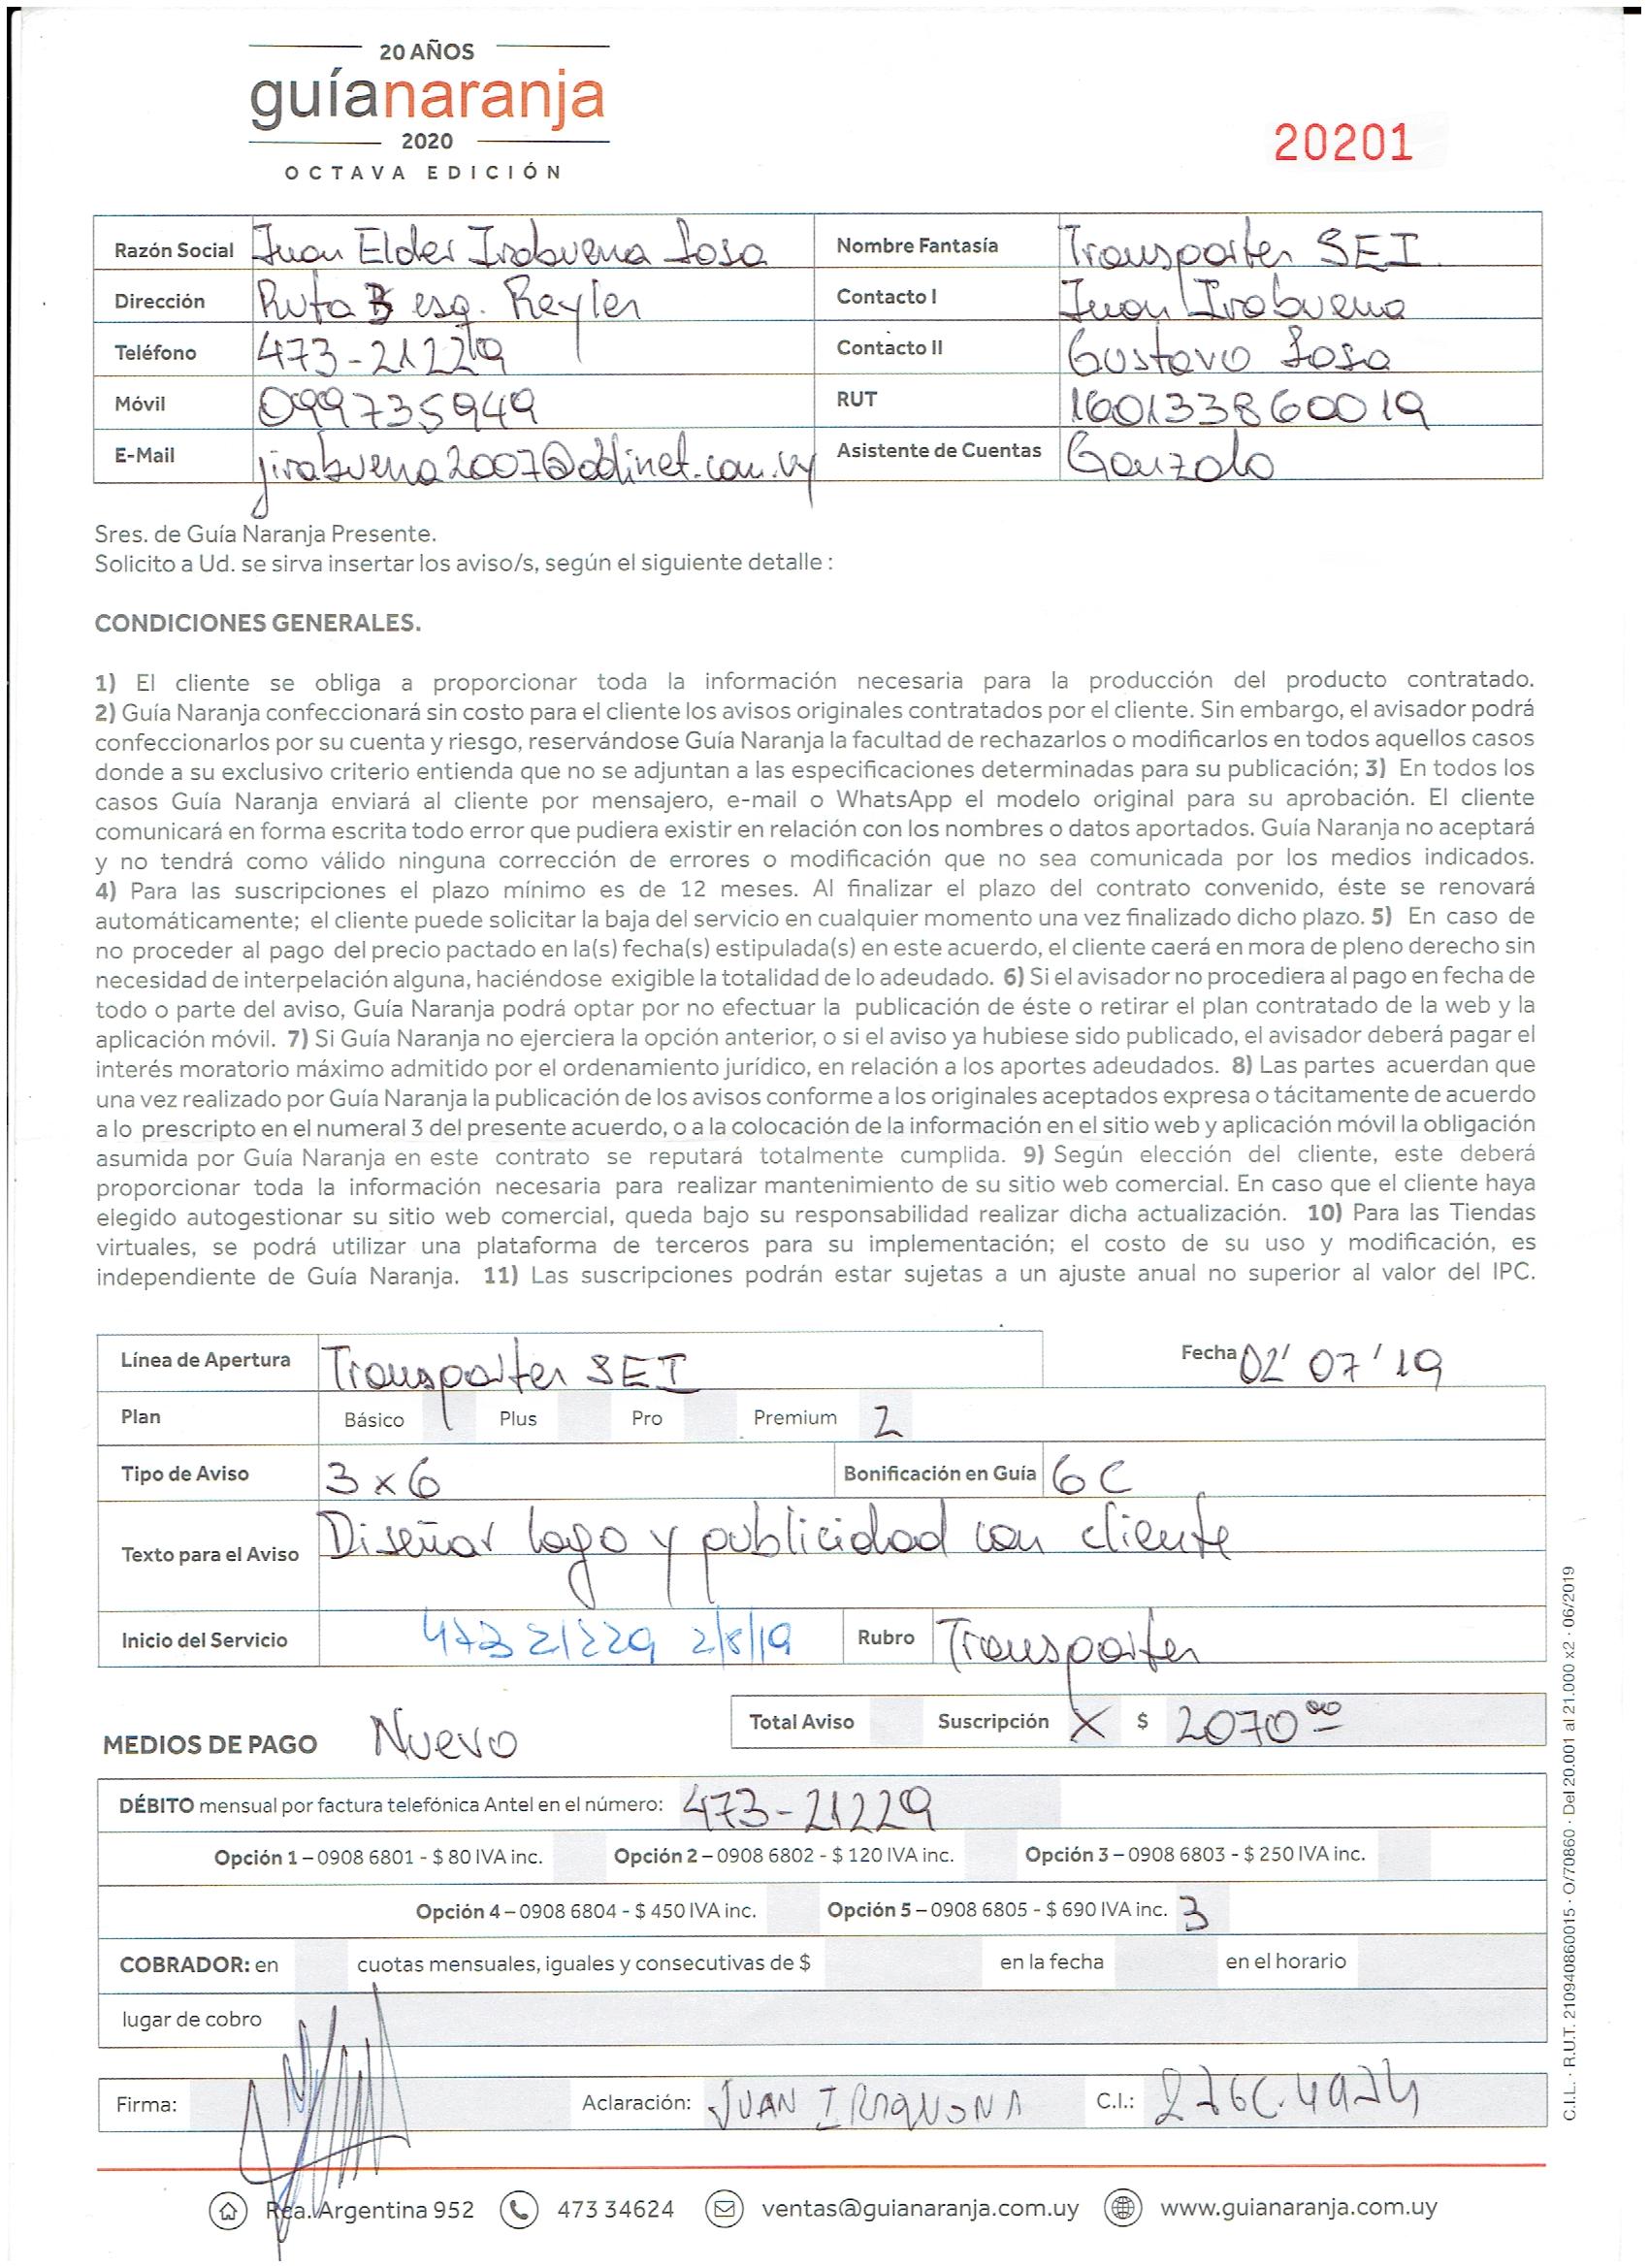 20 AÑOS
guíanaranja
2020
OCTAVA EDICIÓN
20201
Razón Social Juan Elder Irabuena Sosa Nombre Fantasía Transporter SEI
Dirección Ruta 3 esq. Reyler Contacto I Juan Irabuena
Teléfono 473-21229 Contacto II Gustavo Sosa
Móvil 099735949 RUT 160133860019
E-Mail jirabuena2007@adinet.com.uy Asistente de Cuentas Gonzalo
Sres. de Guía Naranja Presente.
Solicito a Ud. se sirva insertar los aviso/s, según el siguiente detalle :
CONDICIONES GENERALES.
1) El cliente se obliga a proporcionar toda la información necesaria para la producción del producto contratado.
2) Guía Naranja confeccionará sin costo para el cliente los avisos originales contratados por el cliente. Sin embargo, el avisador podrá
confeccionarlos por su cuenta y riesgo, reservándose Guía Naranja la facultad de rechazarlos o modificarlos en todos aquellos casos
donde a su exclusivo criterio entienda que no se adjuntan a las especificaciones determinadas para su publicación; 3) En todos los
casos Guía Naranja enviará al cliente por mensajero, e-mail o WhatsApp el modelo original para su aprobación. El cliente
comunicará en forma escrita todo error que pudiera existir en relación con los nombres o datos aportados. Guía Naranja no aceptará
y no tendrá como válido ninguna corrección de errores o modificación que no sea comunicada por los medios indicados.
4) Para las suscripciones el plazo mínimo es de 12 meses. Al finalizar el plazo del contrato convenido, éste se renovará
automáticamente; el cliente puede solicitar la baja del servicio en cualquier momento una vez finalizado dicho plazo. 5) En caso de
no proceder al pago del precio pactado en la(s) fecha(s) estipulada(s) en este acuerdo, el cliente caerá en mora de pleno derecho sin
necesidad de interpelación alguna, haciéndose exigible la totalidad de lo adeudado. 6) Si el avisador no procediera al pago en fecha de
todo o parte del aviso, Guía Naranja podrá optar por no efectuar la publicación de éste o retirar el plan contratado de la web y la
aplicación móvil. 7) Si Guía Naranja no ejerciera la opción anterior, o si el aviso ya hubiese sido publicado, el avisador deberá pagar el
interés moratorio máximo admitido por el ordenamiento jurídico, en relación a los aportes adeudados. 8) Las partes acuerdan que
una vez realizado por Guía Naranja la publicación de los avisos conforme a los originales aceptados expresa o tácitamente de acuerdo
a lo prescripto en el numeral 3 del presente acuerdo, o a la colocación de la información en el sitio web y aplicación móvil la obligación
asumida por Guía Naranja en este contrato se reputará totalmente cumplida. 9) Según elección del cliente, este deberá
proporcionar toda la información necesaria para realizar mantenimiento de su sitio web comercial. En caso que el cliente haya
elegido autogestionar su sitio web comercial, queda bajo su responsabilidad realizar dicha actualización. 10) Para las Tiendas
virtuales, se podrá utilizar una plataforma de terceros para su implementación; el costo de su uso y modificación, es
independiente de Guía Naranja. 11) Las suscripciones podrán estar sujetas a un ajuste anual no superior al valor del IPC.
Línea de Apertura Transporter SEI Fecha 02'07'19
Plan Básico Plus Pro Premium 2
Tipo de Aviso 3x6 Bonificación en Guía 6C
Texto para el Aviso Diseñar logo y publicidad con cliente
Inicio del Servicio 473 21229 2/8/19 Rubro Transporter
MEDIOS DE PAGO Nuevo Total Aviso Suscripción X $ 2070 00
DÉBITO mensual por factura telefónica Antel en el número: 473-21229
Opción 1 – 0908 6801 - $ 80 IVA inc. Opción 2 – 0908 6802 - $ 120 IVA inc. Opción 3 – 0908 6803 - $ 250 IVA inc.
Opción 4 – 0908 6804 - $ 450 IVA inc. Opción 5 – 0908 6805 - $ 690 IVA inc. 3
COBRADOR: en cuotas mensuales, iguales y consecutivas de $ en la fecha en el horario
lugar de cobro
Firma: Aclaración: JUAN C.I.:
Rca. Argentina 952 473 34624 ventas@guianaranja.com.uy www.guianaranja.com.uy
C.I.L. · R.U.T. 210940860015 · O/70860 · Del 20.001 al 21.000 x2 · 06/2019